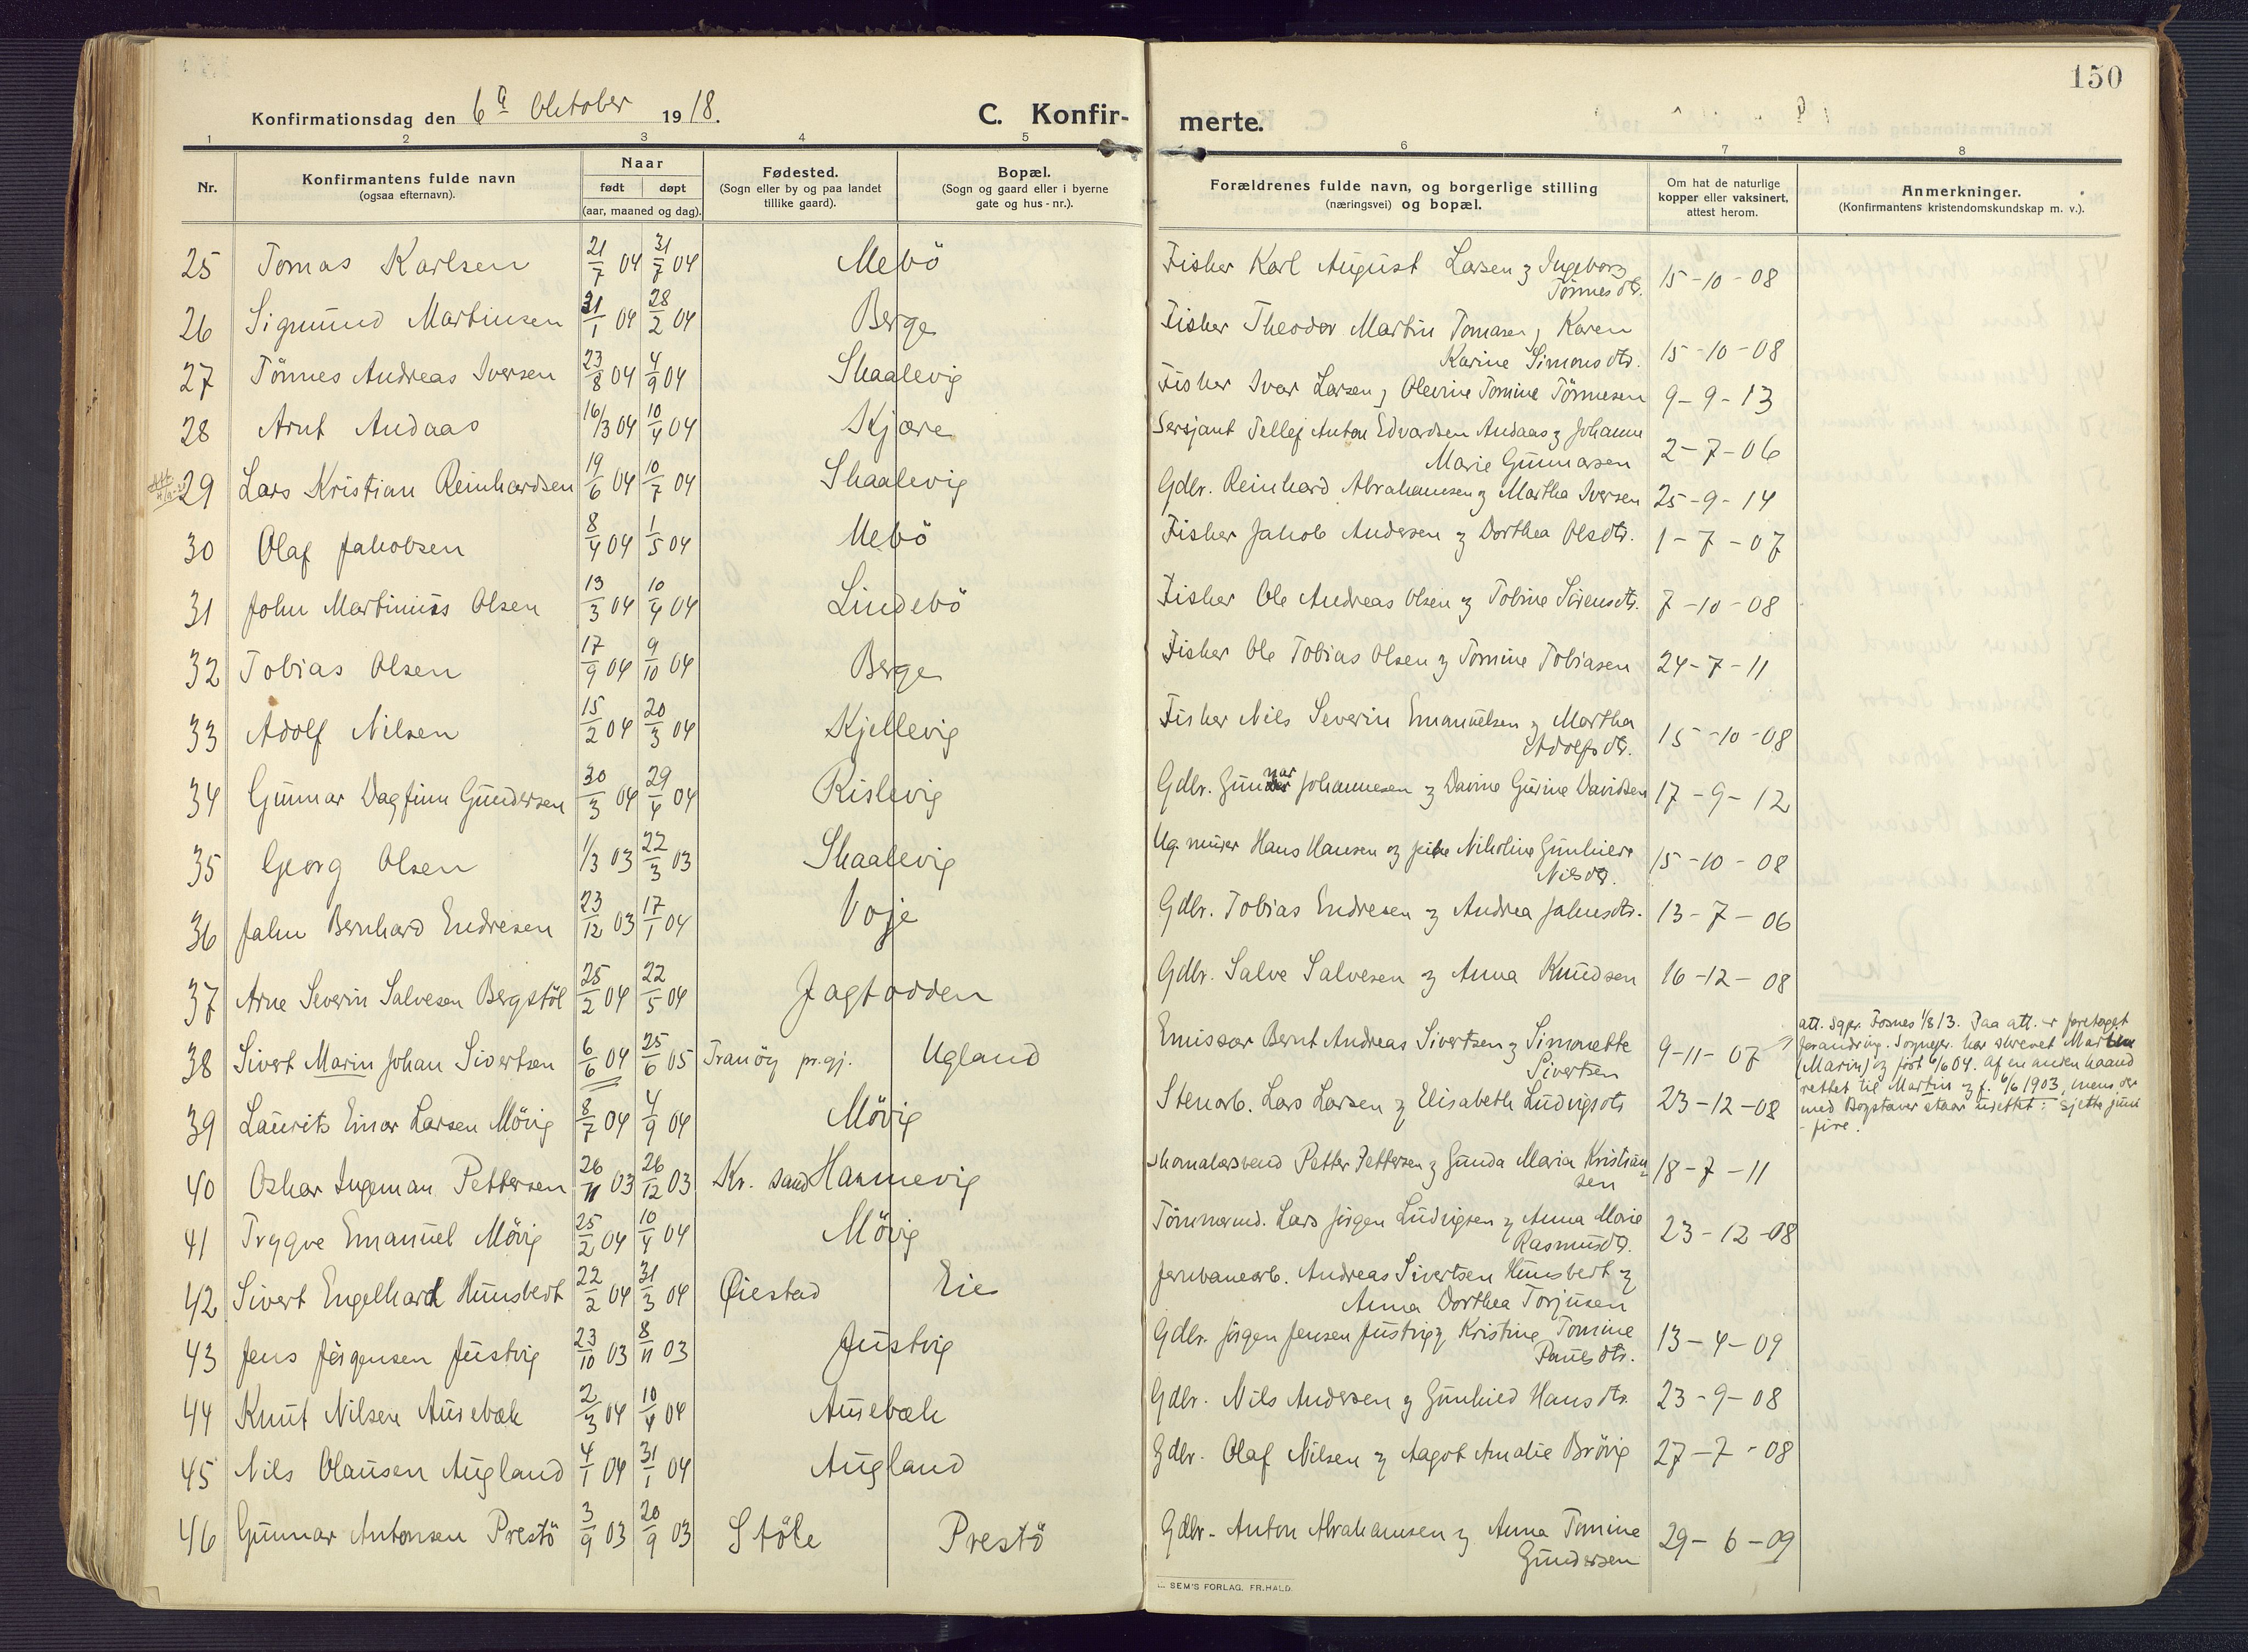 150
Konfirmationsdag den 6te Oktober 1918.
C. Konfir-
merte.
1 2 3 4 5 6 7 8
Nr.
Konfirmantens fulde navn
(ogsaa efternavn).
Naar
født døpt
(aar, maaned og dag).
Fødested.
(Sogn eller by og paa landet
tillike gaard).
Bopæl.
(Sogn og gaard eller i byerne
gate og hus-nr.).
Forældrenes fulde navn, og borgerlige stilling
(næringsvei) og bopæl.
Om hat de naturlige
kopper eller vaksinert,
attest herom.
Anmerkninger.
(Konfirmantens kristendomskundskap m. v.).
25 Tomas Karlsen 21/7 04 31/7 04 Mebö Fisker Karl August Larsen og Ingeborg
Tönnesdtr. 15-10-08
26 Sigmund Martinsen 31/1 04 28/2 04 Berge Fisker Theodor Martin Tomasen, Karen
Karine Simonsdtr. 15-10-08
27 Tönnes Andreas Iversen 23/8 04 4/9 04 Skaalevig Fisker Ivar Larsen, Olevine Tomine Tönnesen 9-9-13
28 Arnt Andaas 16/3 04 10/4 04 Kjære Sersjant Tellef Anton Edvardsen Andaas og Johanne
Marie Gunnarsen 2-7-06
29 Lars Kristian Reinhardsen 19/6 04 10/7 04 Skaalevig Gdbr. Reinhard Abrahamsen og Martha Iversen 25-9-14
30 Olaf Jakobsen 8/4 04 1/5 04 Mebö Fisker Jakob Andersen og Dorthea Olsdtr. 1-7-07
31 John Martinius Olsen 13/3 04 10/4 04 Lindebö Fisker Ole Andreas Olsen og Tobine Sörensdtr. 7-10-08
32 Tobias Olsen 17/9 04 9/10 04 Berge Fisker Ole Tobias Olsen og Tomine Tobiasen 24-7-11
33 Adolf Nilsen 15/2 04 20/3 04 Kjellevig Fisker Nils Severin Emanuelsen og Martha
Adolfsdtr. 15-10-08
34 Gunnar Dagfinn Gundersen 30/3 04 29/4 04 Rislevig Gdbr. Gunnar Johannesen og Davine Gurine Davidsen 17-9-12
35 Georg Olsen 1/3 03 22/3 03 Skaalevig Ug. murer Hans Hansen og pike Nikoline Gunhilde
Nilsdtr. 15-10-08
36 Jahn Bernhard Endresen 23/12 03 17/1 04 Voje Gdbr. Tobias Endresen og Andrea Jahnsdtr. 13-7-06
37 Arne Severin Salvesen Bergstöl 25/2 04 22/5 04 Jagtodden Gdbr. Salve Salvesen og Anna Knudsen 16-12-08
38 Sivert Marin Johan Sivertsen 6/6 04 25/6 05 Tranöy pr.gj. Ugland Emissær Bernt Andreas Sivertsen og Simonette
Sivertsen 9-11-07
att. sgpr. Fosnes 1/8 13. Paa att. er foretaget
forandring. Sogneyr. har skrevet
(Marin) og født 6/6 04. af en anden haand
rettet til Martin og f. 6/6 1903, mens der
med Bogstaver staar urettet: sjette juni
- fire.
39 Laurits Einar Larsen Mövig 8/7 04 4/9 04 Mövig Stenarb. Lars Larsen og Elisabeth Ludvigsdtr 23-12-08
40 Oskar Ingeman Pettersen 26/11 03 26/12 03 Kr. sand Hannevig Skomakersvend Petter Pettersen og Gunda Maria Kristian-
sen 18-7-11
41 Trygve Emanuel Mövig 25/2 04 10/4 04 Mövig Tömmermd. Lars Jörgen Ludvigsen og Anna Marie
Rasmusdtr. 23-12-08
42 Sivert Engelhard Hunsbedt 22/2 04 31/3 04 Øiestad Eie Jernbanearb. Andreas Sivertsen Hunsbedt og
Anna Dorthea Torjusen
43 Jens Jörgensen Justvig 23/10 03 8/11 03 Justvig Gdbr. Jörgen Jensen Justvig og Kristine Tomine
Paulsdtr. 13-4-09
44 Knut Nilsen Ausebæk 2/3 04 10/4 04 Ausebæk Gdbr. Nils Andersen og Gunhild Hansdtr. 23-9-08
45 Nils Olausen Augland 4/1 04 31/1 04 Augland Gdbr. Olaf Nilsen og Aagot Amalie Brövig 27-7-08
46 Gunnar Antonsen Prestö 3/9 03 20/9 03 Stöle Prestö Gdbr. Anton Abrahamsen og Anna Tomine
Gundersen 29-6-09
SEM'S FORLAG, FR.HALD.